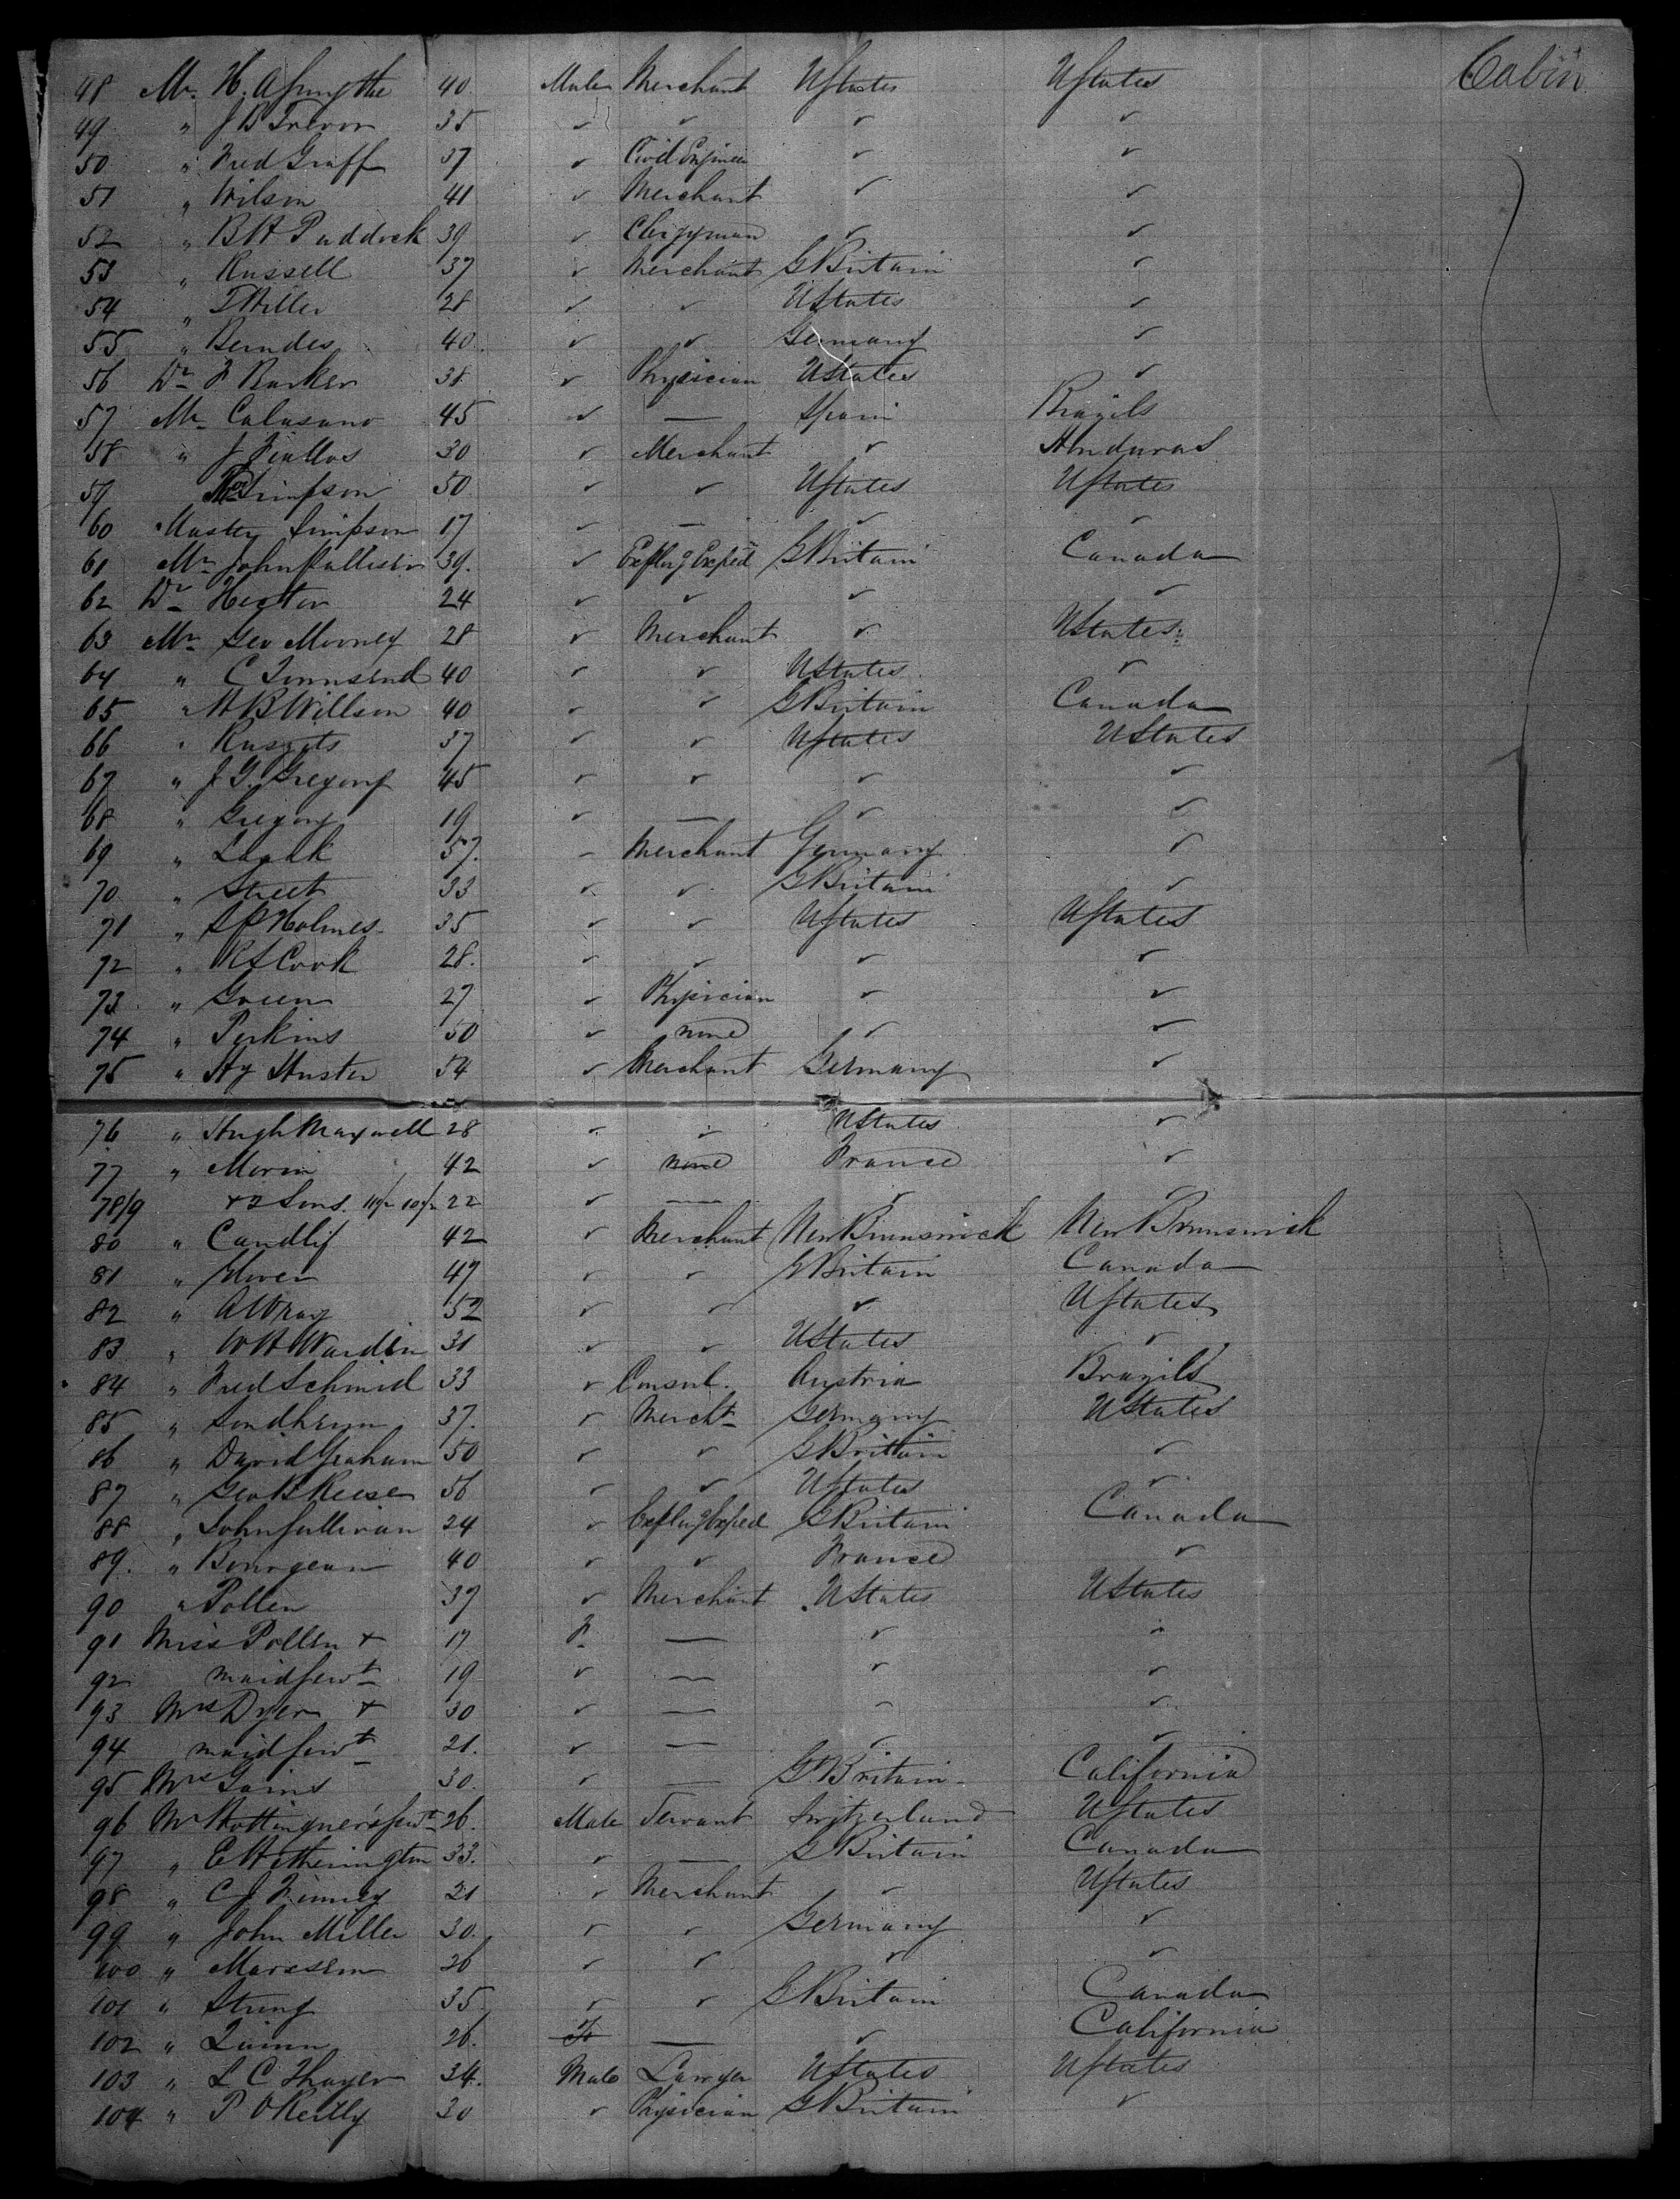 Cabin
48 Mr. H. A Smythe 40 Male Merchant UStates UStates
49 " J B Trevor 35 " " " "
50 " Fred Graff 37 " Civil Engineer " "
51 " Wilson 41 " Merchant " "
52 " B H Paddock 39 " Clergyman " "
53 " Russell 37 " Merchant GBritain "
54 " 28 " " UStates "
55 " Berndes 40 " " Germany "
56 Dr F Barker 38 " Physician UStates "
57 Mr Calasano 45 " — Spain Brazils
58 " J Fiallos 30 " Merchant " Honduras
59 Simpson 50 " " UStates UStates
60 Master Simpson 17 " — " "
61 Mr John Palliser 39. " Explug Exped GBritain Canada
62 Dr Hector 24 " " " "
63 Mr Geo Mooney 28 " Merchant " UStates
64 " C Townsend 40 " " UStates "
65 " H B Willson 40 " " GBritain Canada
66 " 37 " " UStates UStates
67 " J G. Gregory 45 " " " "
68 " Gregory 19 " — " "
69 " 57. " Merchant Germany "
70 " Street 33 " " GBritain "
71 " S P Holmes 35 " " UStates UStates
72 " R S Cook 28. " " " "
73 " Green 27 " Physician " "
74 " Perkins 50 " none " "
75 " Hy Huster 54 " Merchant Germany "
76 " Hugh Maxwell 28 " " UStates "
77 " Morin 42 " none France "
78/9 + 2 Sons. 22 " — " "
80 " Cundlif 42 " Merchant New Brunswick New Brunswick
81 " 47 " " GBritain Canada
82 " A Wray 52 " " " UStates
83 " W H Wardin 31 " " UStates "
84 " Fred Schmid 33 " Consul. Austria Brazils
85 " Sondheim 37. " Mercht Germany UStates
86 " David Graham 50 " " GBrittain "
87 " Geo B Reese 56 " " UStates "
88 " John Sullivan 24 " Explug Exped GBritain Canada
89. " Bourgeau 40 " " France "
90 " Pollen 37 " Merchant UStates UStates
91 Miss Pollen + 17 F — " "
92 maid servt 19 " — " "
93 Mrs Dyer + 30 " — " "
94 maid servt 21. " — " "
95 Mrs Gains 30. " — GBritain California
96 Mr Hottinguer's servt 26. Male Servant Switzerland UStates
97 " E Hetherington 33. " — GBritain Canada
98 " C J Finney 21 " Merchant " UStates
99 " John Miller 30. " " Germany "
100 " 26 " " " "
101 " Strong 35 " " GBritain Canada
102 " Quinn 26. F — " California
103 " L C Thayer 34. Male Lawyer UStates UStates
104 " P OReilly 30 " Physician GBritain "